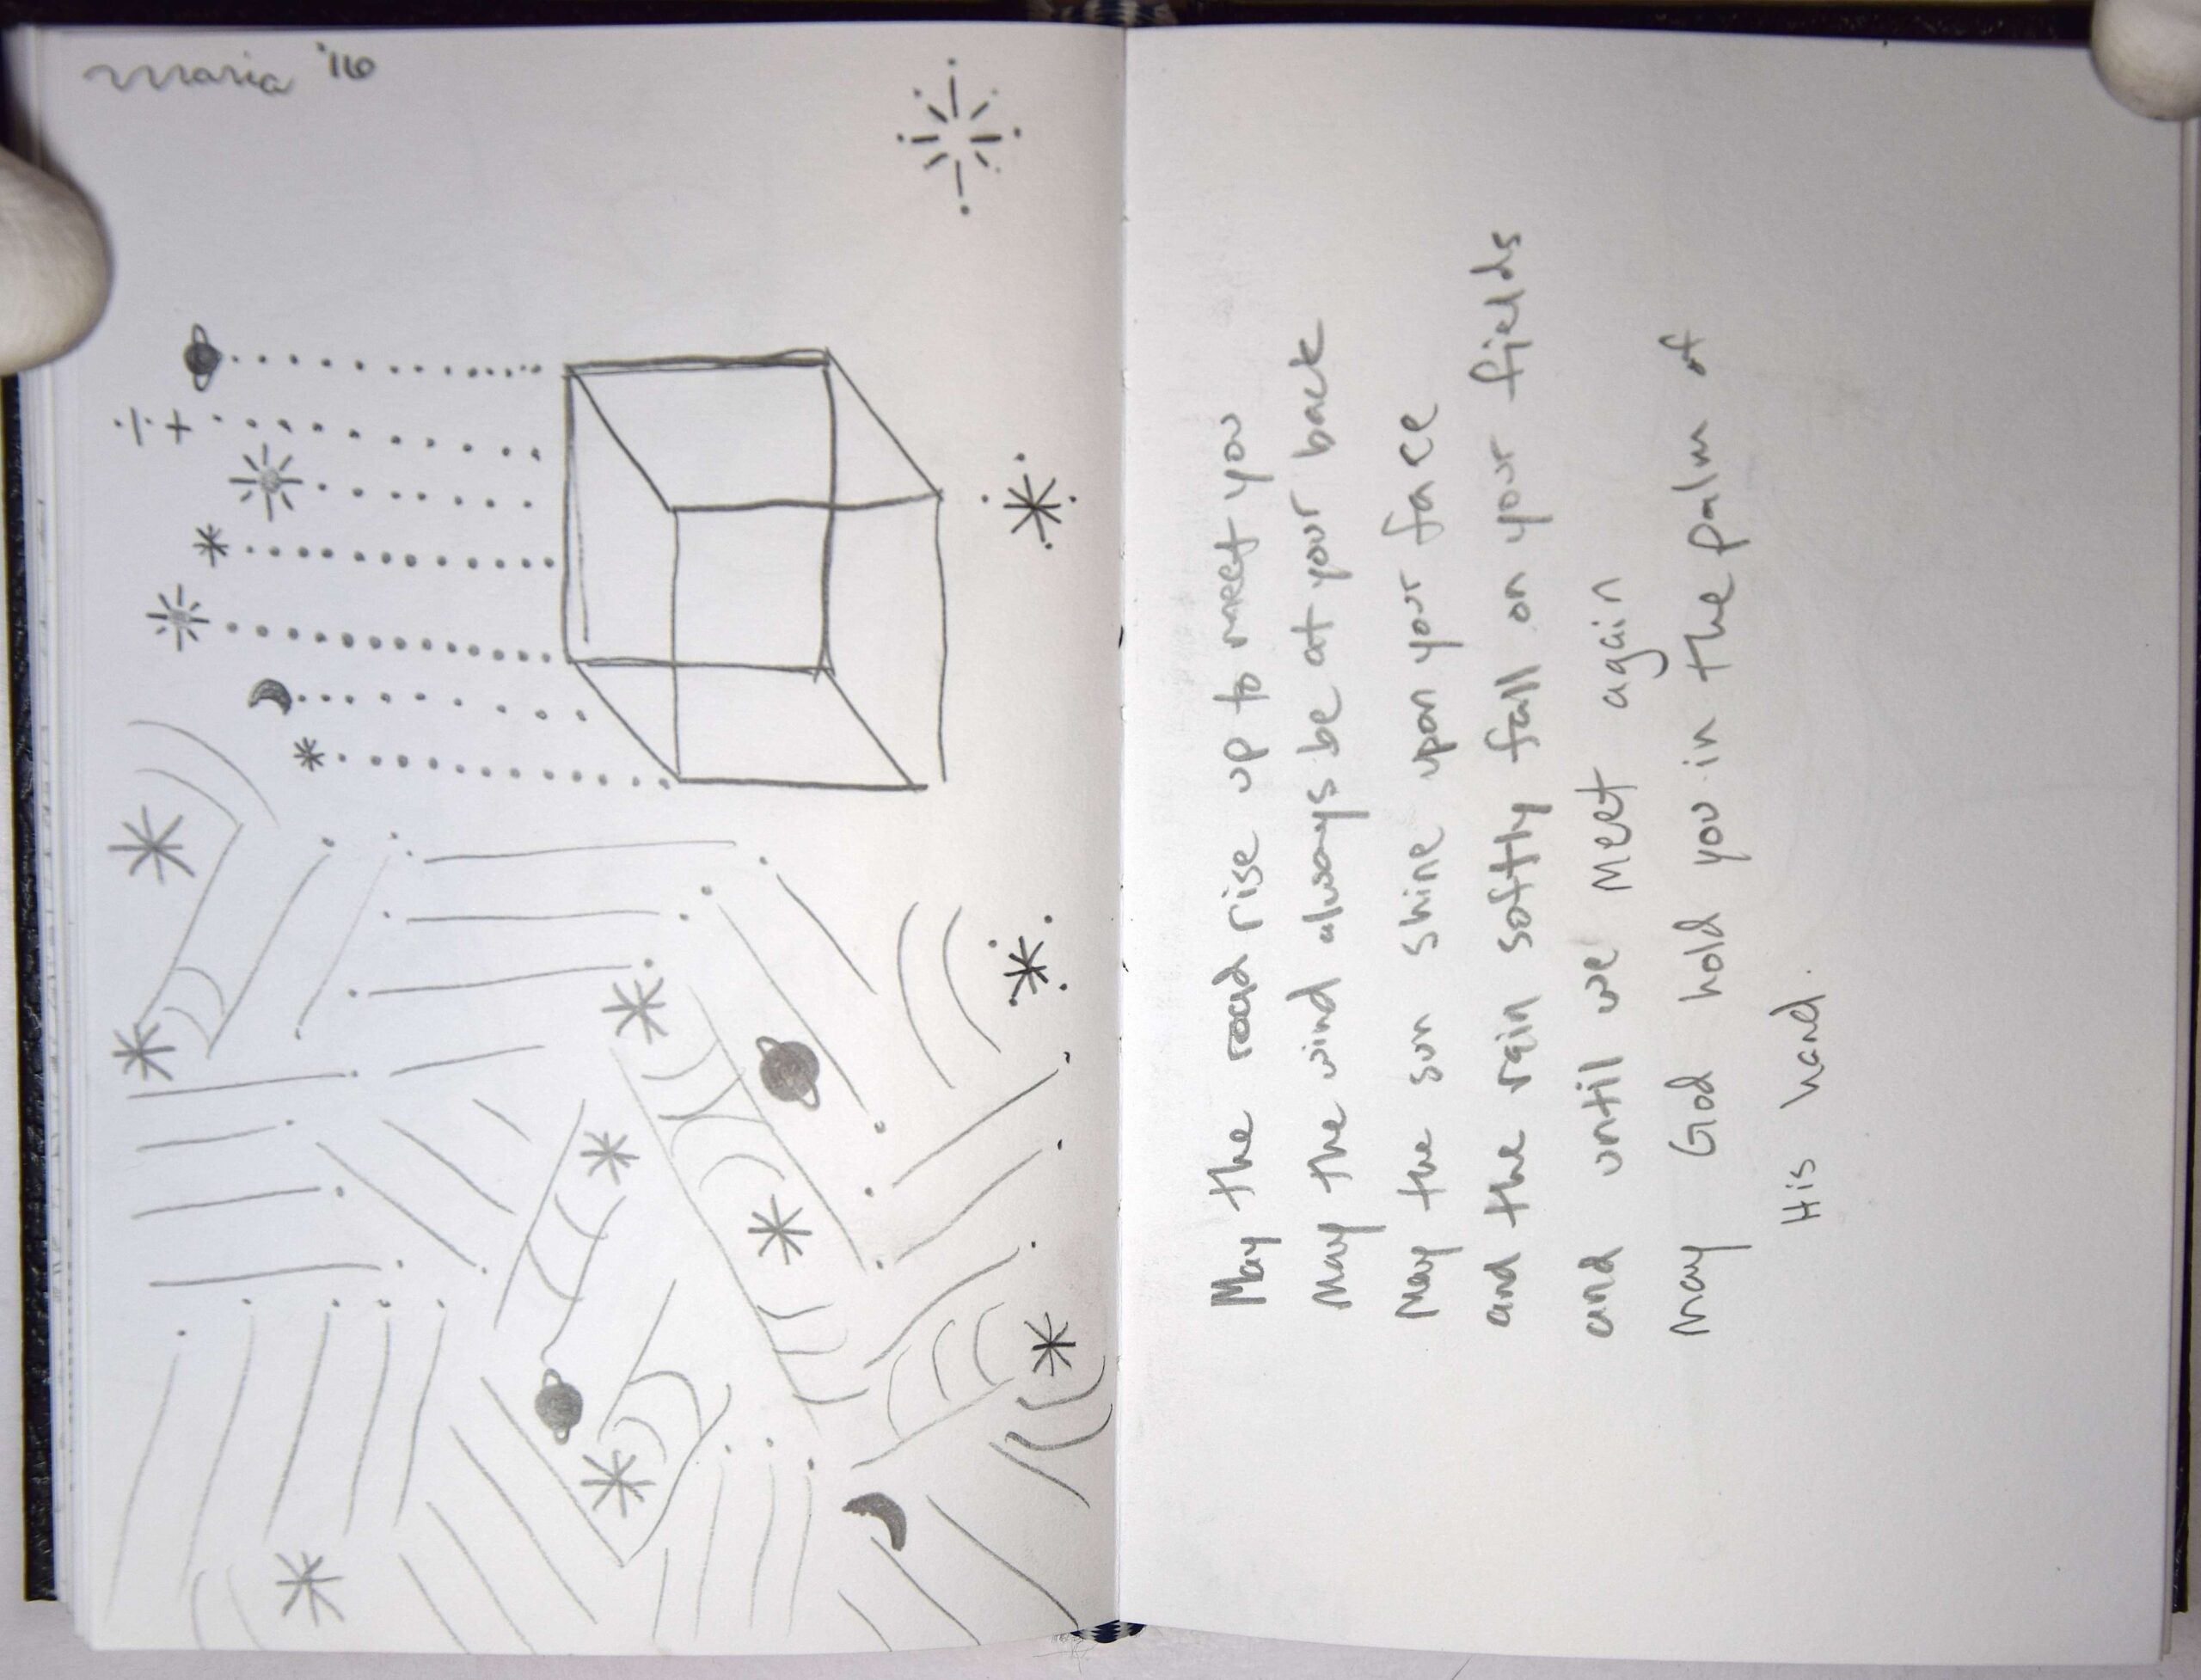 maria '16
May the road rise up to meet you
May the wind always be at your back
May the sun shine upon your face
and the rain softly fall on your fields
and until we meet again
may God hold you in the palm of
His hand.